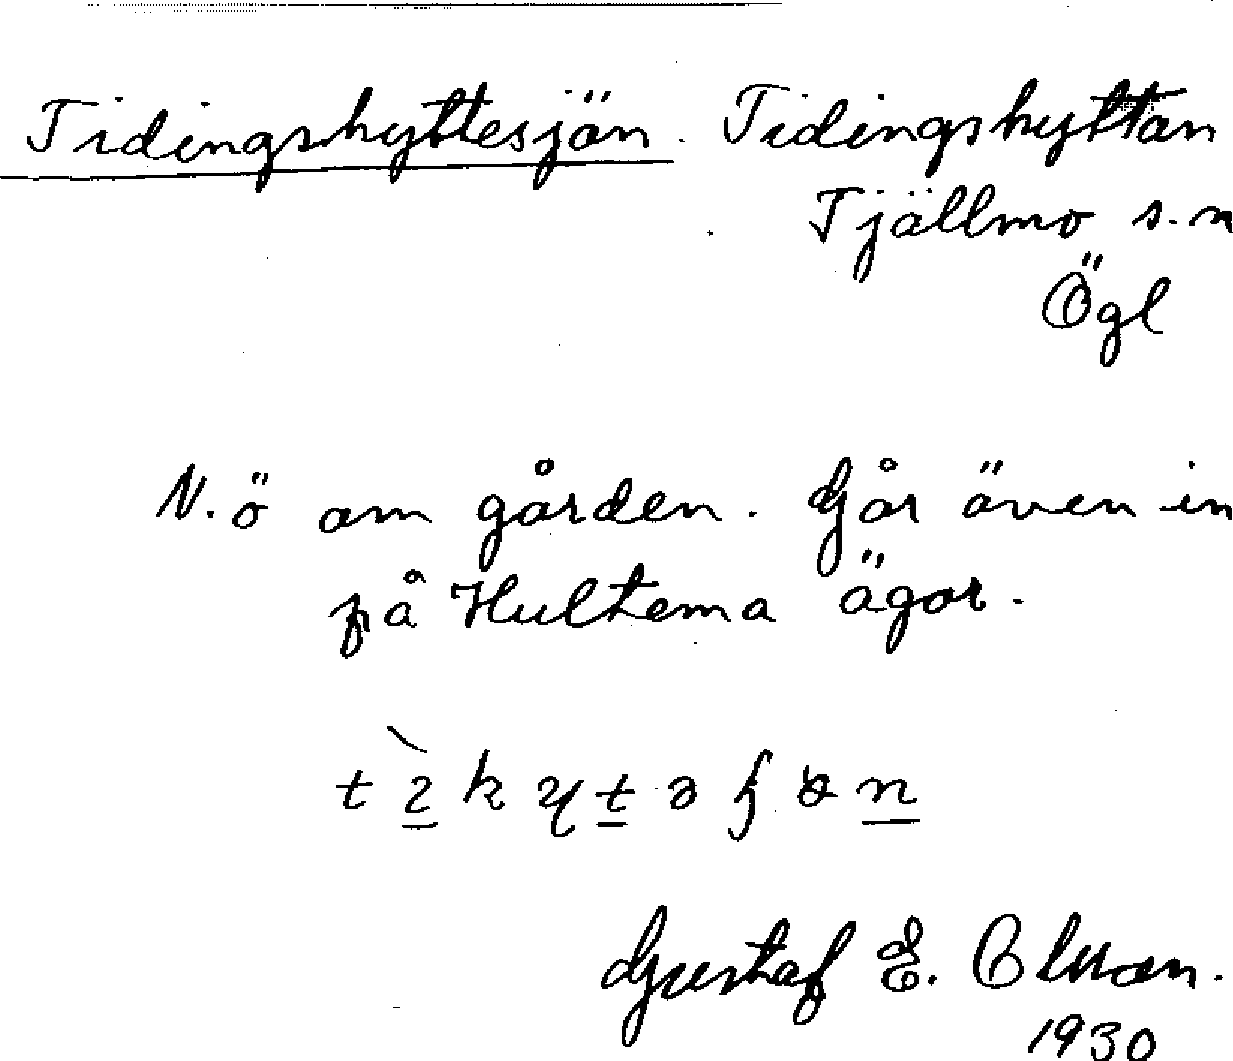 Tidingshyttesjön. Tidingshyttan
Tjällmo s.n
Ögl
N.ö om gården. Går även in
på Hultema ägor.
Gustaf E. Olsson.
1930